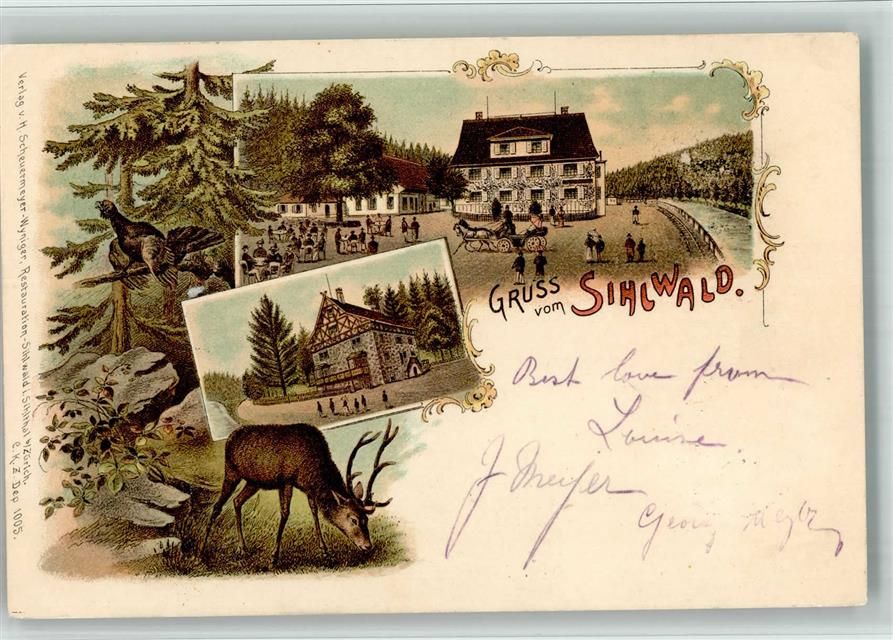 GRUSS vom SIHLWALD.
Best love from
Louise
J Meyer
Georg Meyer
Verlag v. H. Scheuermeyer-Wyniger, Restauration-Sihlwald i. Sihlthal b/Zürich.
C. K. Z. Dep 1005.